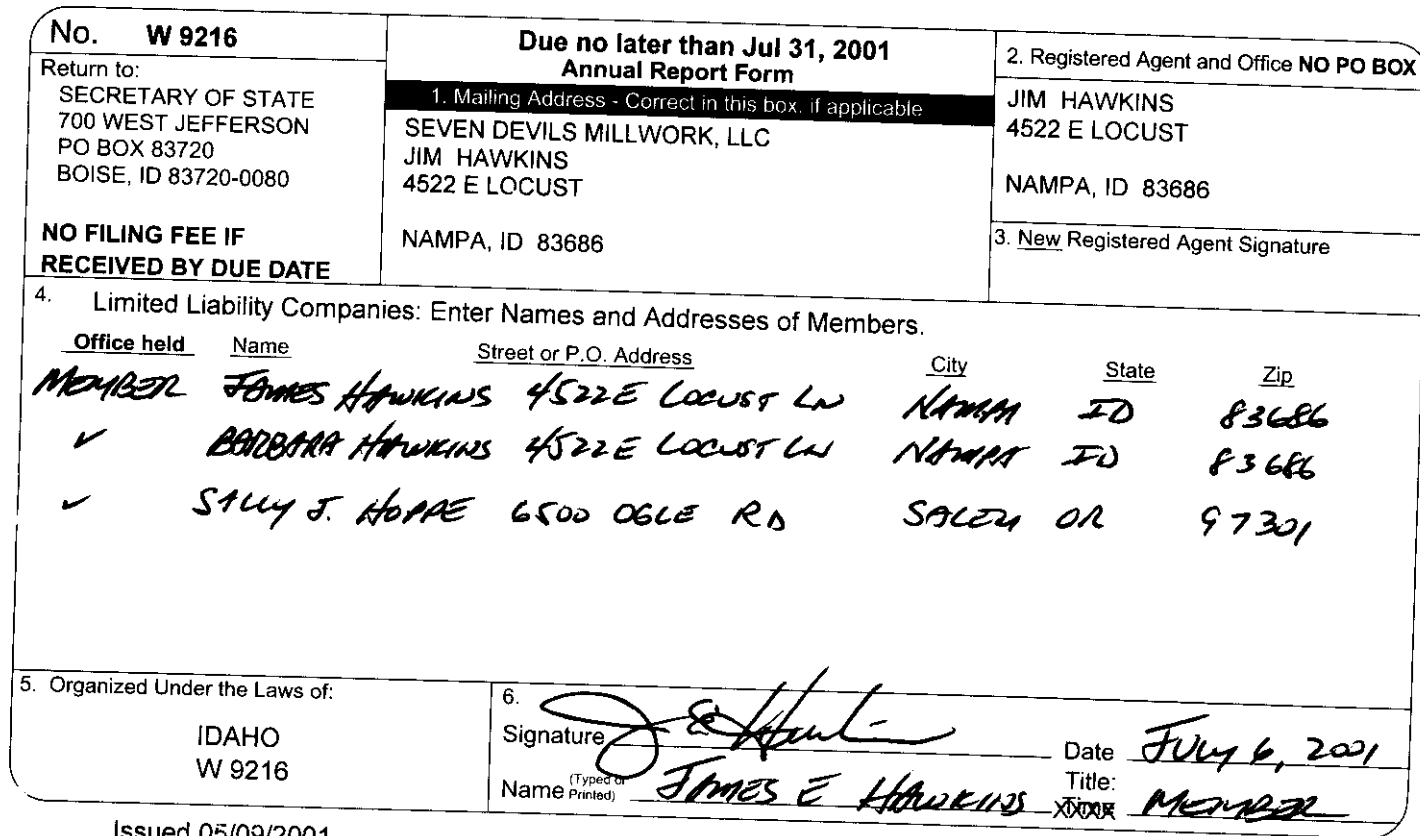 No. W 9216
Return to:
SECRETARY OF STATE
700 WEST JEFFERSON
PO BOX 83720
BOISE, ID 83720-0080
NO FILING FEE IF
RECEIVED BY DUE DATE
Due no later than Jul 31, 2001
Annual Report Form
1. Mailing Address - Correct in this box, if applicable
SEVEN DEVILS MILLWORK, LLC
JIM HAWKINS
4522 E LOCUST
NAMPA, ID 83686
2. Registered Agent and Office NO PO BOX
JIM HAWKINS
4522 E LOCUST
NAMPA, ID 83686
3. New Registered Agent Signature
4. Limited Liability Companies: Enter Names and Addresses of Members.
Office held Name Street or P.O. Address City State Zip
MEMBER JAMES HAWKINS 4522 E LOCUST LN NAMPA ID 83686
✓ BARBARA HAWKINS 4522 E LOCUST LN NAMPA ID 83686
✓ SALLY J. HOPPE 6500 OGLE RD SALEM OR 97301
5. Organized Under the Laws of:
IDAHO
W 9216
6.
Signature J E Hawkins Date JULY 6, 2001
Name (Typed or Printed) JAMES E HAWKINS Title: MEMBER
Issued 05/09/2001